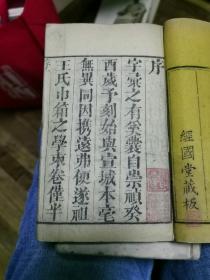 經國堂藏板
序
字彙之有奚囊自崇禎癸
酉歲予刻始與宣城本毫
無異同因携遠弗便遂祖
王氏巾箱之學束卷僅半